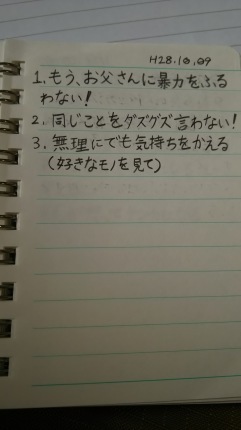 H28.10.09
1.もう、お父さんに暴力をふる
わない!
2.同じことをグズグズ言わない!
3.無理にでも気持ちをかえる
(好きなモノを見て)